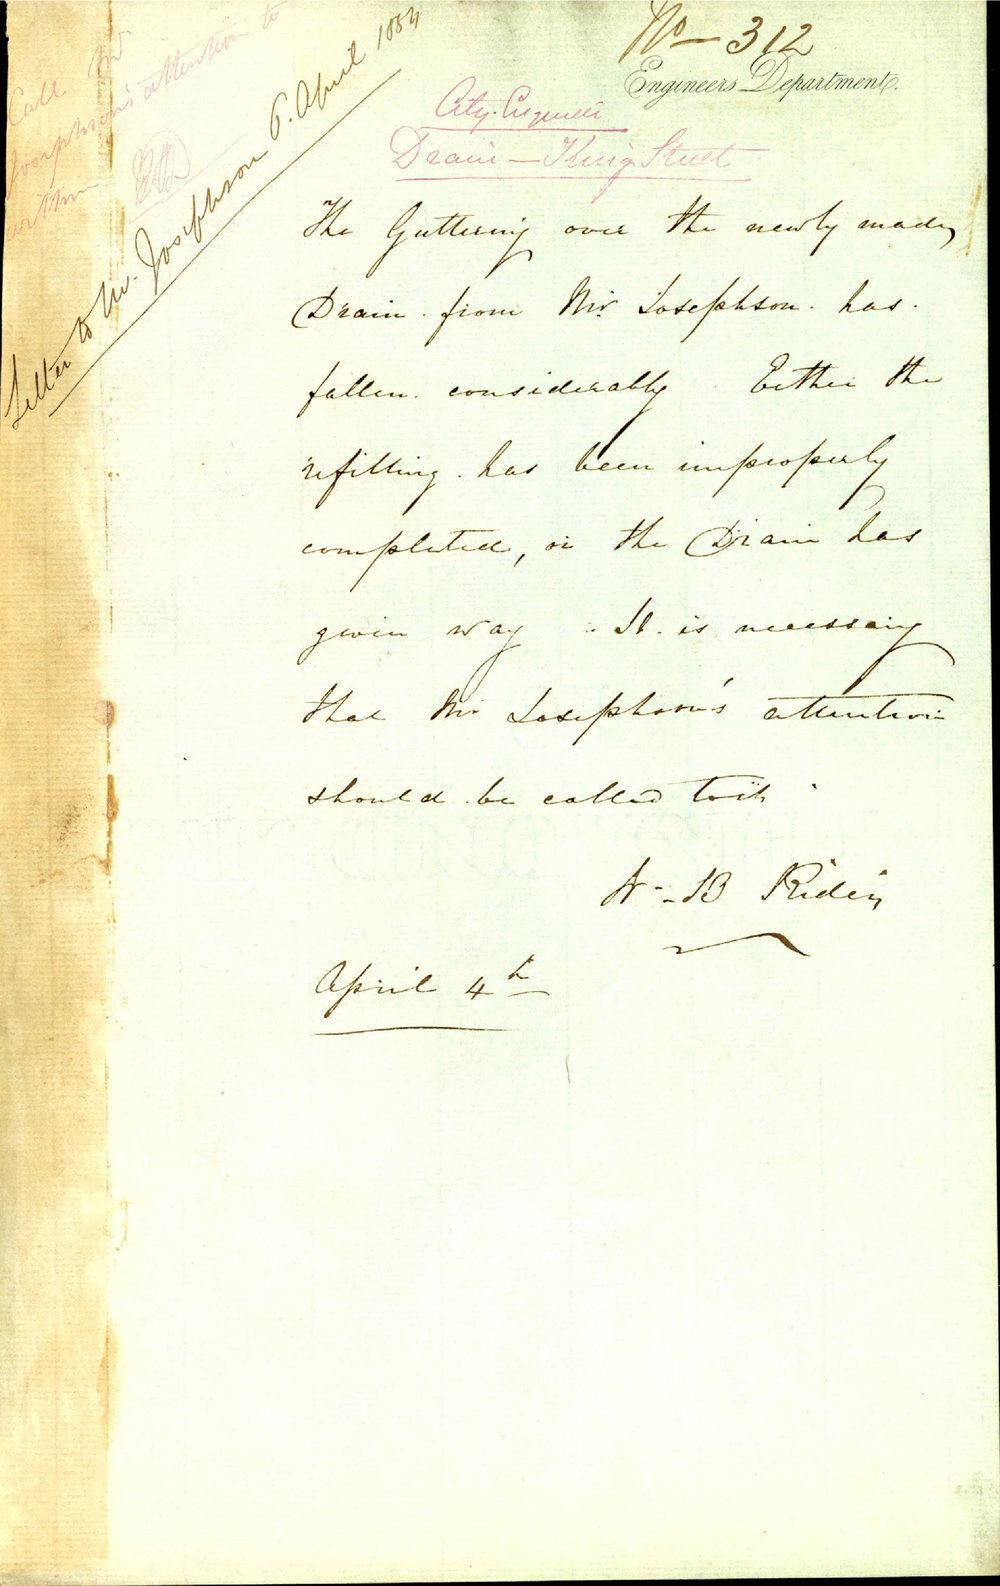 No - 312
Engineers Department.
City Engineer
Drain - King Street
The Guttering over the newly made
Drain from Mr Josephson has
fallen considerably Either the
refilling has been improperly
completed, or the Drain has
given way. It is necessary
that Mr Josephson's attention
should be called to it
W. B Rider
April 4th
Letter to Mr. Josephson 6. April 1854
Call Mr
Josephson's attention to